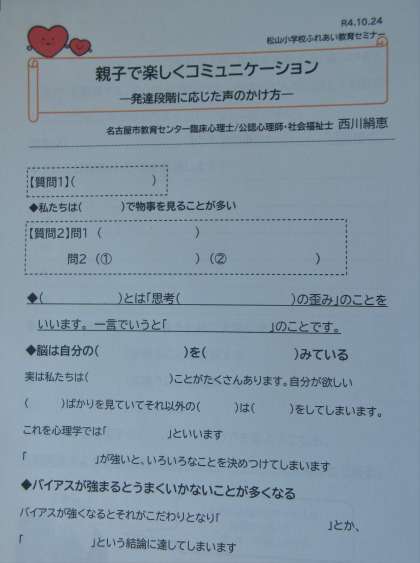 R4.10.24
松山小学校ふれあい教育セミナー
親子で楽しくコミュニケーション
―発達段階に応じた声のかけ方―
名古屋市教育センター臨床心理士/公認心理師・社会福祉士 西川絹恵
【質問1】( )
◆私たちは( )で物事を見ることが多い
【質問2】問1 ( )
問2 (① ) (② )
◆( )とは「思考( )の歪み」のことを
いいます。一言でいうと「 」のことです。
◆脳は自分の( )を( )みている
実は私たちは( )ことがたくさんあります。自分が欲しい
( )ばかりを見ていてそれ以外の( )は( )をしてしまいます。
これを心理学では「 」といいます
「 」が強いと、いろいろなことを決めつけてしまいます
◆バイアスが強まるとうまくいかないことが多くなる
バイアスが強くなるとそれがこだわりとなり「 」とか、
「 」という結論に達してしまいます